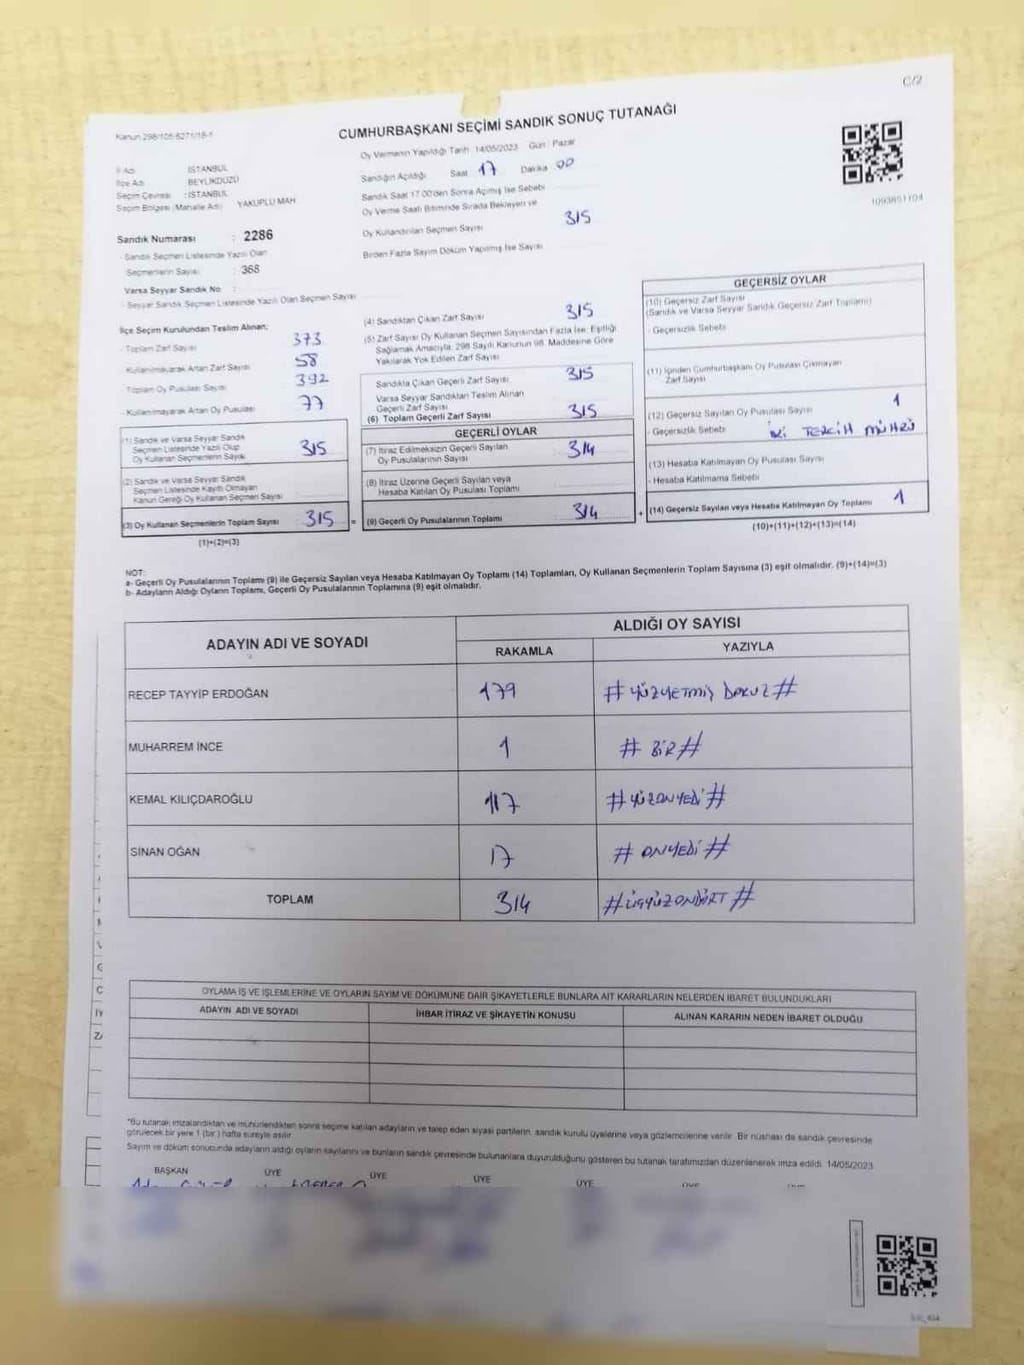 C/2
Kanun 298/105-6271/18-1
CUMHURBAŞKANI SEÇİMİ SANDIK SONUÇ TUTANAĞI
Oy Vermenin Yapıldığı Tarih 14/05/2023 Gün : Pazar
İl Adı İSTANBUL
İlçe Adı BEYLİKDÜZÜ
Seçim Çevresi : İSTANBUL
Seçim Bölgesi (Mahalle Adı) YAKUPLU MAH
Sandığın Açıldığı Saat 17 Dakika 00
Sandık Saat 17.00'den Sonra Açılmış İse Sebebi
Oy Verme Saati Bitiminde Sırada Bekleyen ve
Oy Kullandırılan Seçmen Sayısı 315
Birden Fazla Sayım Döküm Yapılmış İse Sayısı
1093851104
Sandık Numarası : 2286
- Sandık Seçmen Listesinde Yazılı Olan
Seçmenlerin Sayısı : 368
Varsa Seyyar Sandık No :
- Seyyar Sandık Seçmen Listesinde Yazılı Olan Seçmen Sayısı
İlçe Seçim Kurulundan Teslim Alınan;
- Toplam Zarf Sayısı 373
- Kullanılmayarak Artan Zarf Sayısı 58
- Toplam Oy Pusulası Sayısı 392
- Kullanılmayarak Artan Oy Pusulası 77
(1) Sandık ve Varsa Seyyar Sandık
Seçmen Listesinde Yazılı Olup
Oy Kullanan Seçmenlerin Sayısı 315
(2) Sandık ve Varsa Seyyar Sandık
Seçmen Listesinde Kayıtlı Olmayan
Kanun Gereği Oy Kullanan Seçmen Sayısı
(3) Oy Kullanan Seçmenlerin Toplam Sayısı 315 =
(1)+(2)=(3)
(4) Sandıktan Çıkan Zarf Sayısı 315
(5) Zarf Sayısı Oy Kullanan Seçmen Sayısından Fazla İse, Eşitliği
Sağlamak Amacıyla, 298 Sayılı Kanunun 98. Maddesine Göre
Yakılarak Yok Edilen Zarf Sayısı
Sandıkta Çıkan Geçerli Zarf Sayısı 315
Varsa Seyyar Sandıktan Teslim Alınan
Geçerli Zarf Sayısı
(6) Toplam Geçerli Zarf Sayısı 315
GEÇERLİ OYLAR
(7) İtiraz Edilmeksizin Geçerli Sayılan
Oy Pusulalarının Sayısı 314
(8) İtiraz Üzerine Geçerli Sayılan veya
Hesaba Katılan Oy Pusulası Toplamı
(9) Geçerli Oy Pusulalarının Toplamı 314 +
GEÇERSİZ OYLAR
(10) Geçersiz Zarf Sayısı
(Sandık ve Varsa Seyyar Sandık Geçersiz Zarf Toplamı)
- Geçersizlik Sebebi
(11) İçinden Cumhurbaşkanı Oy Pusulası Çıkmayan
Zarf Sayısı
(12) Geçersiz Sayılan Oy Pusulası Sayısı 1
- Geçersizlik Sebebi İKİ TERCİH MÜHRÜ
(13) Hesaba Katılmayan Oy Pusulası Sayısı
- Hesaba Katılmama Sebebi
(14) Geçersiz Sayılan veya Hesaba Katılmayan Oy Toplamı 1
(10)+(11)+(12)+(13)=(14)
NOT:
a- Geçerli Oy Pusulalarının Toplamı (9) ile Geçersiz Sayılan veya Hesaba Katılmayan Oy Toplamı (14) Toplamları, Oy Kullanan Seçmenlerin Toplam Sayısına (3) eşit olmalıdır. (9)+(14)=(3)
b- Adayların Aldığı Oyların Toplamı, Geçerli Oy Pusulalarının Toplamına (9) eşit olmalıdır.
ADAYIN ADI VE SOYADI
ALDIĞI OY SAYISI
RAKAMLA YAZIYLA
RECEP TAYYİP ERDOĞAN 179 #YÜZYETMİŞ DOKUZ#
MUHARREM İNCE 1 #BİR#
KEMAL KILIÇDAROĞLU 117 #YÜZONYEDİ#
SİNAN OĞAN 17 #ONYEDİ#
TOPLAM 314 #ÜÇYÜZONDÖRT#
OYLAMA İŞ VE İŞLEMLERİNE VE OYLARIN SAYIM VE DÖKÜMÜNE DAİR ŞİKAYETLERLE BUNLARA AİT KARARLARIN NELERDEN İBARET BULUNDUKLARI
ADAYIN ADI VE SOYADI İHBAR İTİRAZ VE ŞİKAYETİN KONUSU ALINAN KARARIN NEDEN İBARET OLDUĞU
*Bu tutanak imzalandıktan ve mühürlendikten sonra seçime katılan adayların ve talep eden siyasi partilerin, sandık kurulu üyelerine veya gözlemcilerine verilir. Bir nüshası da sandık çevresinde
görülecek bir yere 1 (bir) hafta süreyle asılır.
Sayım ve döküm sonucunda adayların aldığı oyların sayılarını ve bunların sandık çevresinde bulunanlara duyurulduğunu gösteren bu tutanak tarafımızdan düzenlenerek imza edildi. 14/05/2023
BAŞKAN ÜYE ÜYE ÜYE ÜYE ÜYE